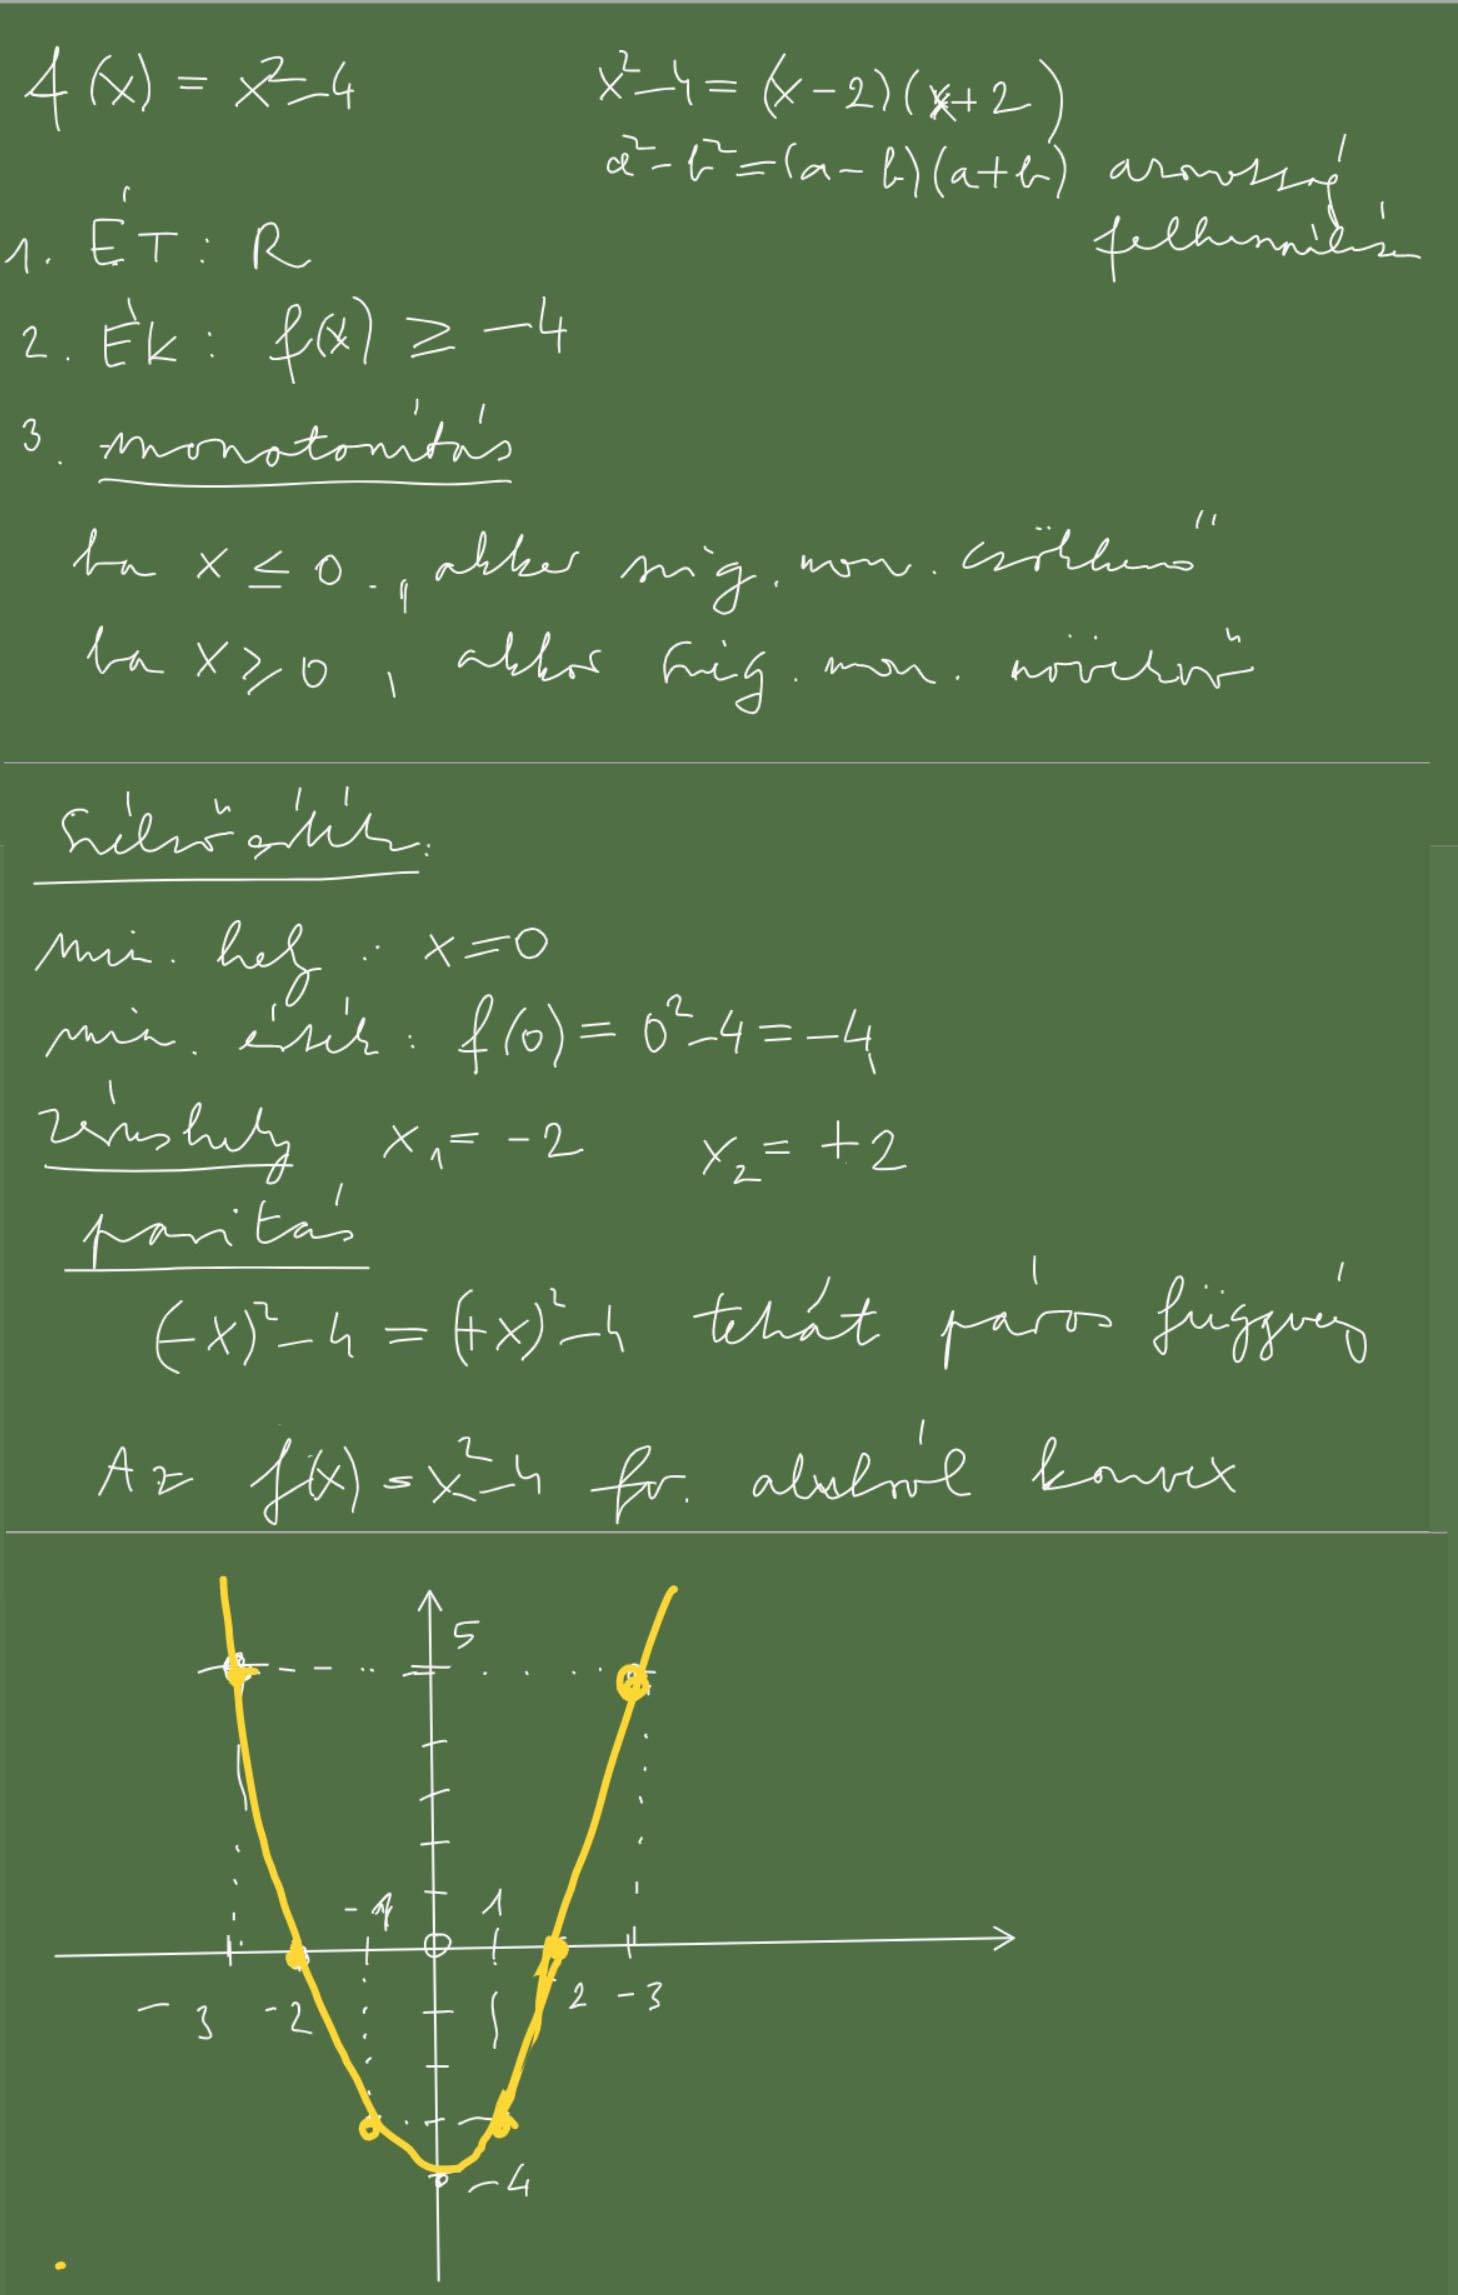 f(x) = x²-4
x²-4 = (x-2)(x+2)
a²-b² = (a-b)(a+b) azonosság
felhasználása
1. ÉT: R
2. ÉK: f(x) ≥ -4
3. monotonitás
ha x ≤ 0, akkor szig. mon. csökkenő
ha x ≥ 0, akkor szig. mon. növekvő
Szélsőérték:
min. hely: x=0
min. érték: f(0) = 0²-4 = -4
zérushely x₁ = -2 x₂ = +2
paritás
(-x)²-4 = (+x)²-4 tehát páros függvény
Az f(x) = x²-4 fv. alulról konvex
5
-1 0 1
-3 -2 2 -3
-4